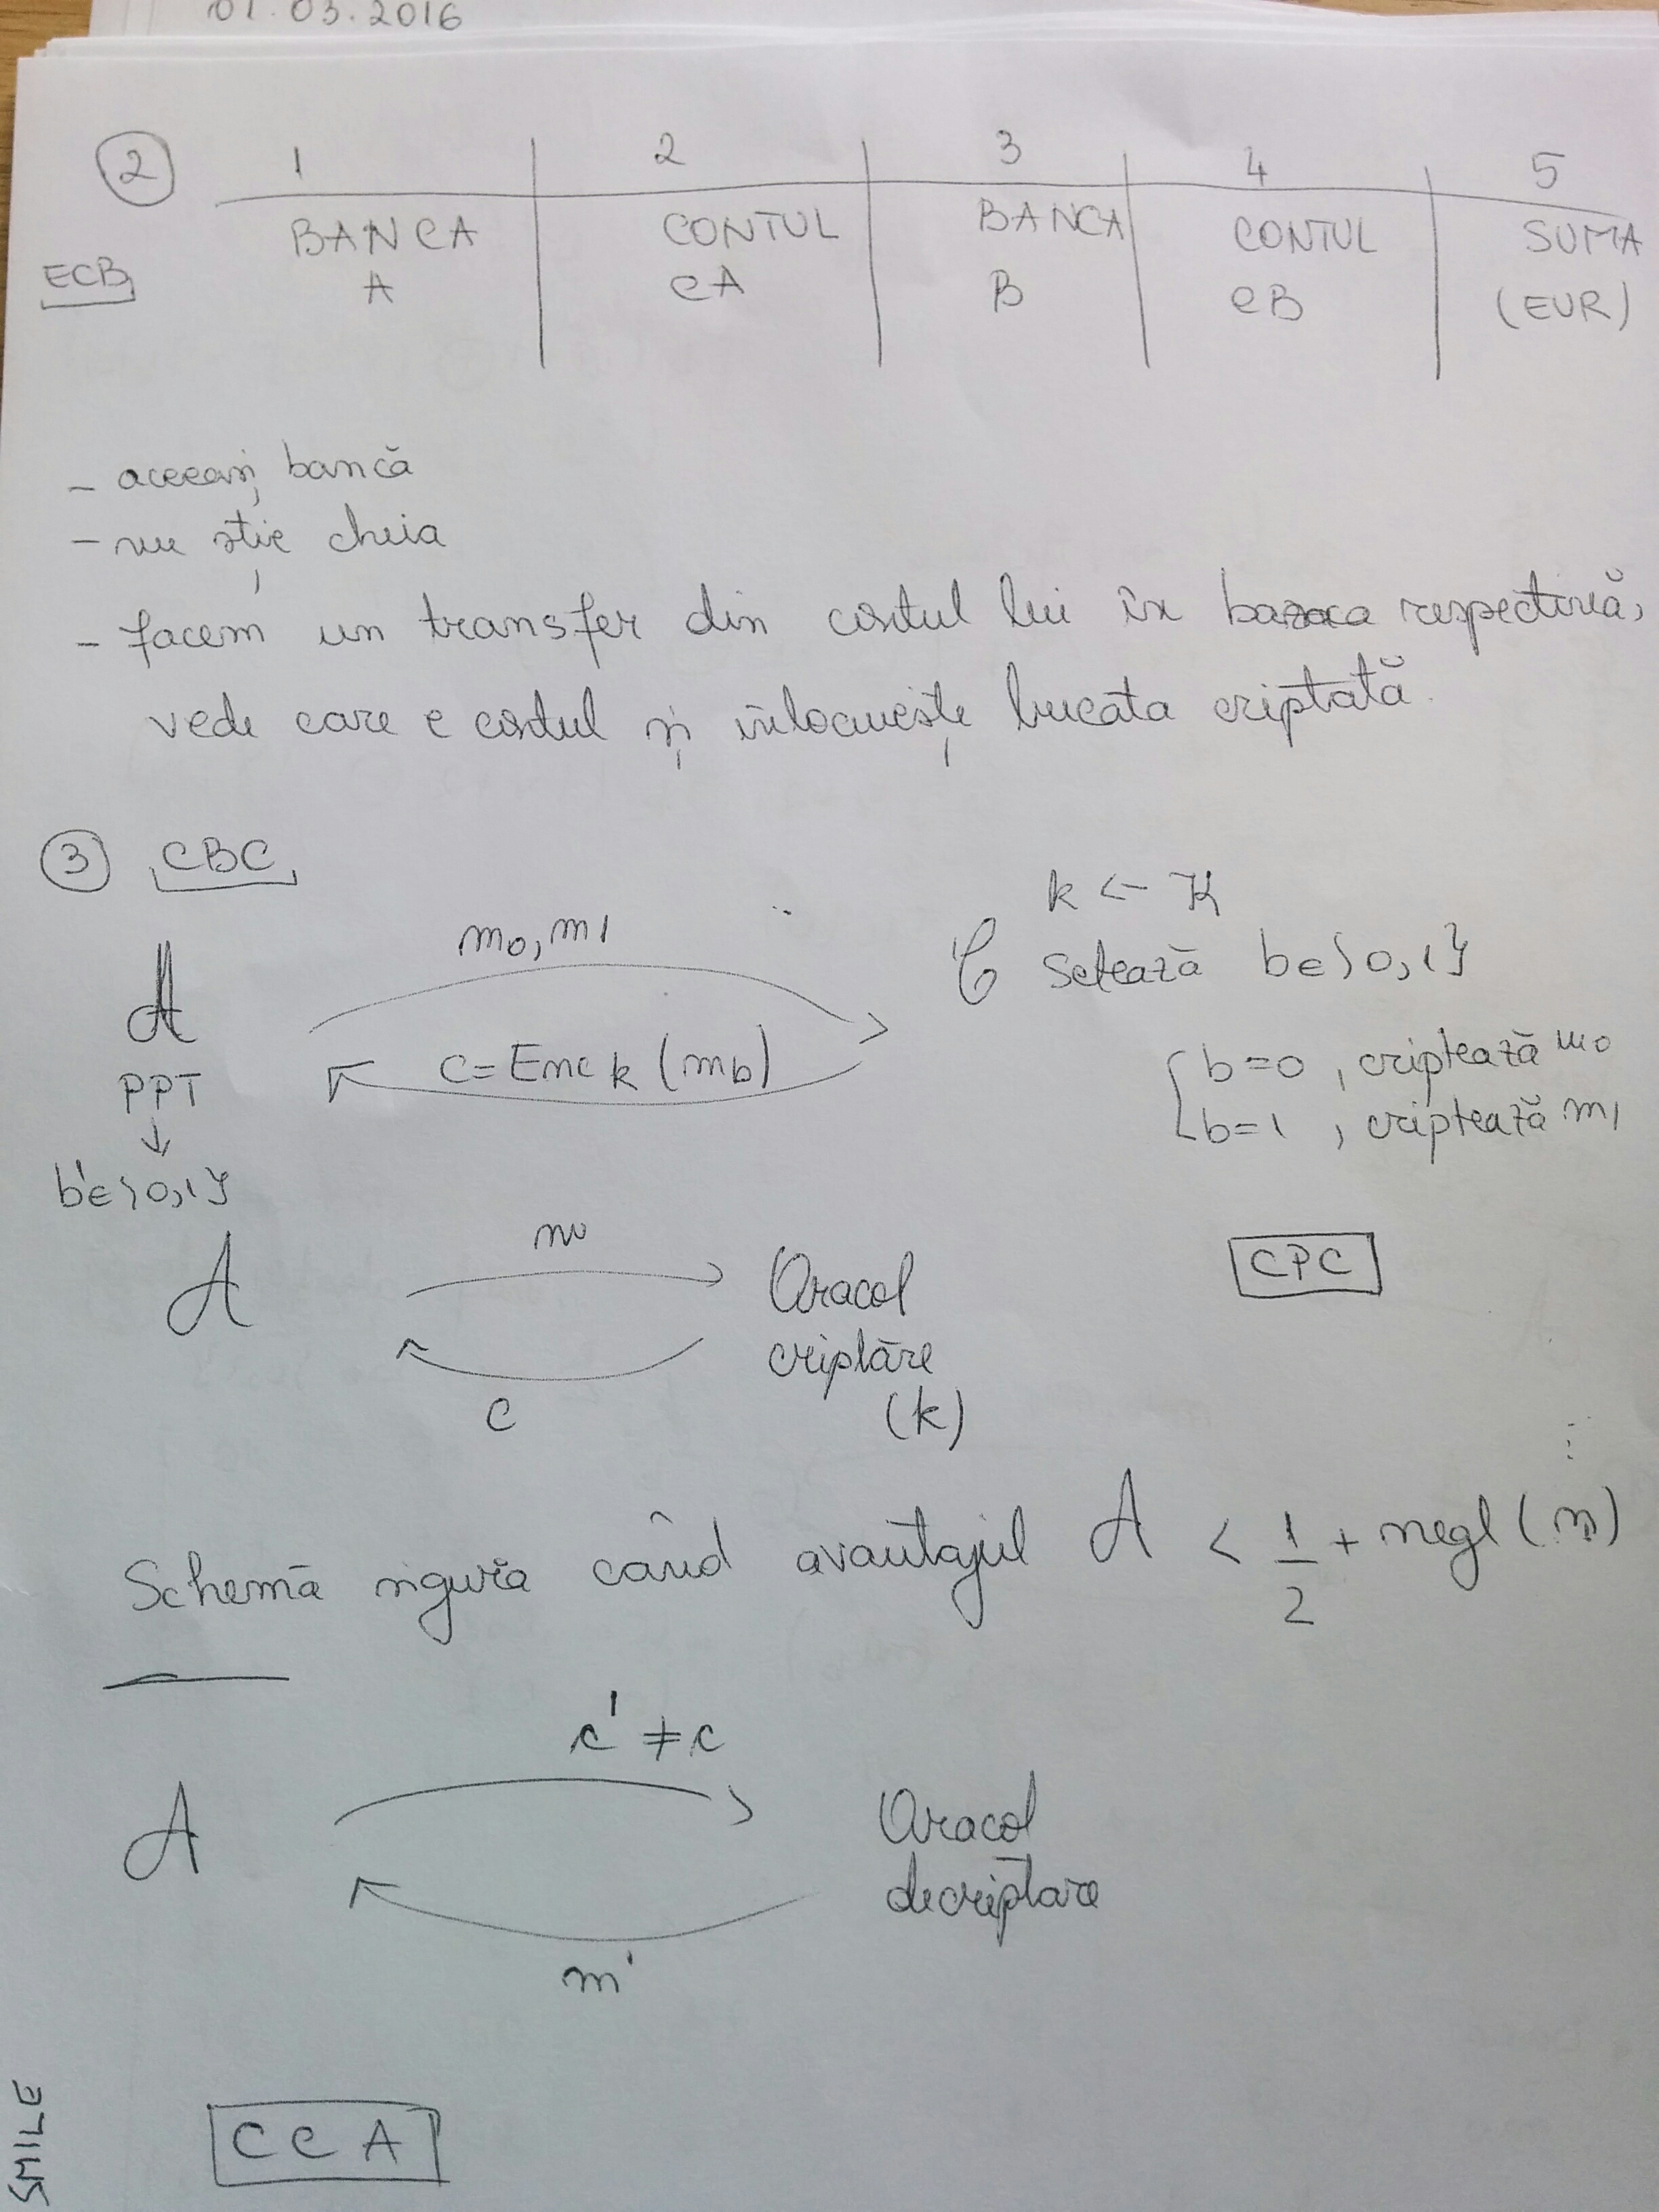 01.03.2016
2 1 2 3 4 5
BANCA CONTUL BANCA CONTUL SUMA
ECB A CA B CB (EUR)
- aceeași bancă
- nu știe cheia
- facem un transfer din contul lui în banca respectivă,
vede care e contul și înlocuiește bucata criptată.
3 CBC
k ← K
m0, m1
A C setează b∈{0,1}
PPT c = Enc k (mb) { b=0, criptează m0
b=1, criptează m1
b'∈{0,1}
m
A Oracol CPC
criptare
c (k)
Schemă sigură când avantajul A < 1/2 + negl(n)
c' ≠ c
A Oracol
decriptare
m'
CCA
SMILE